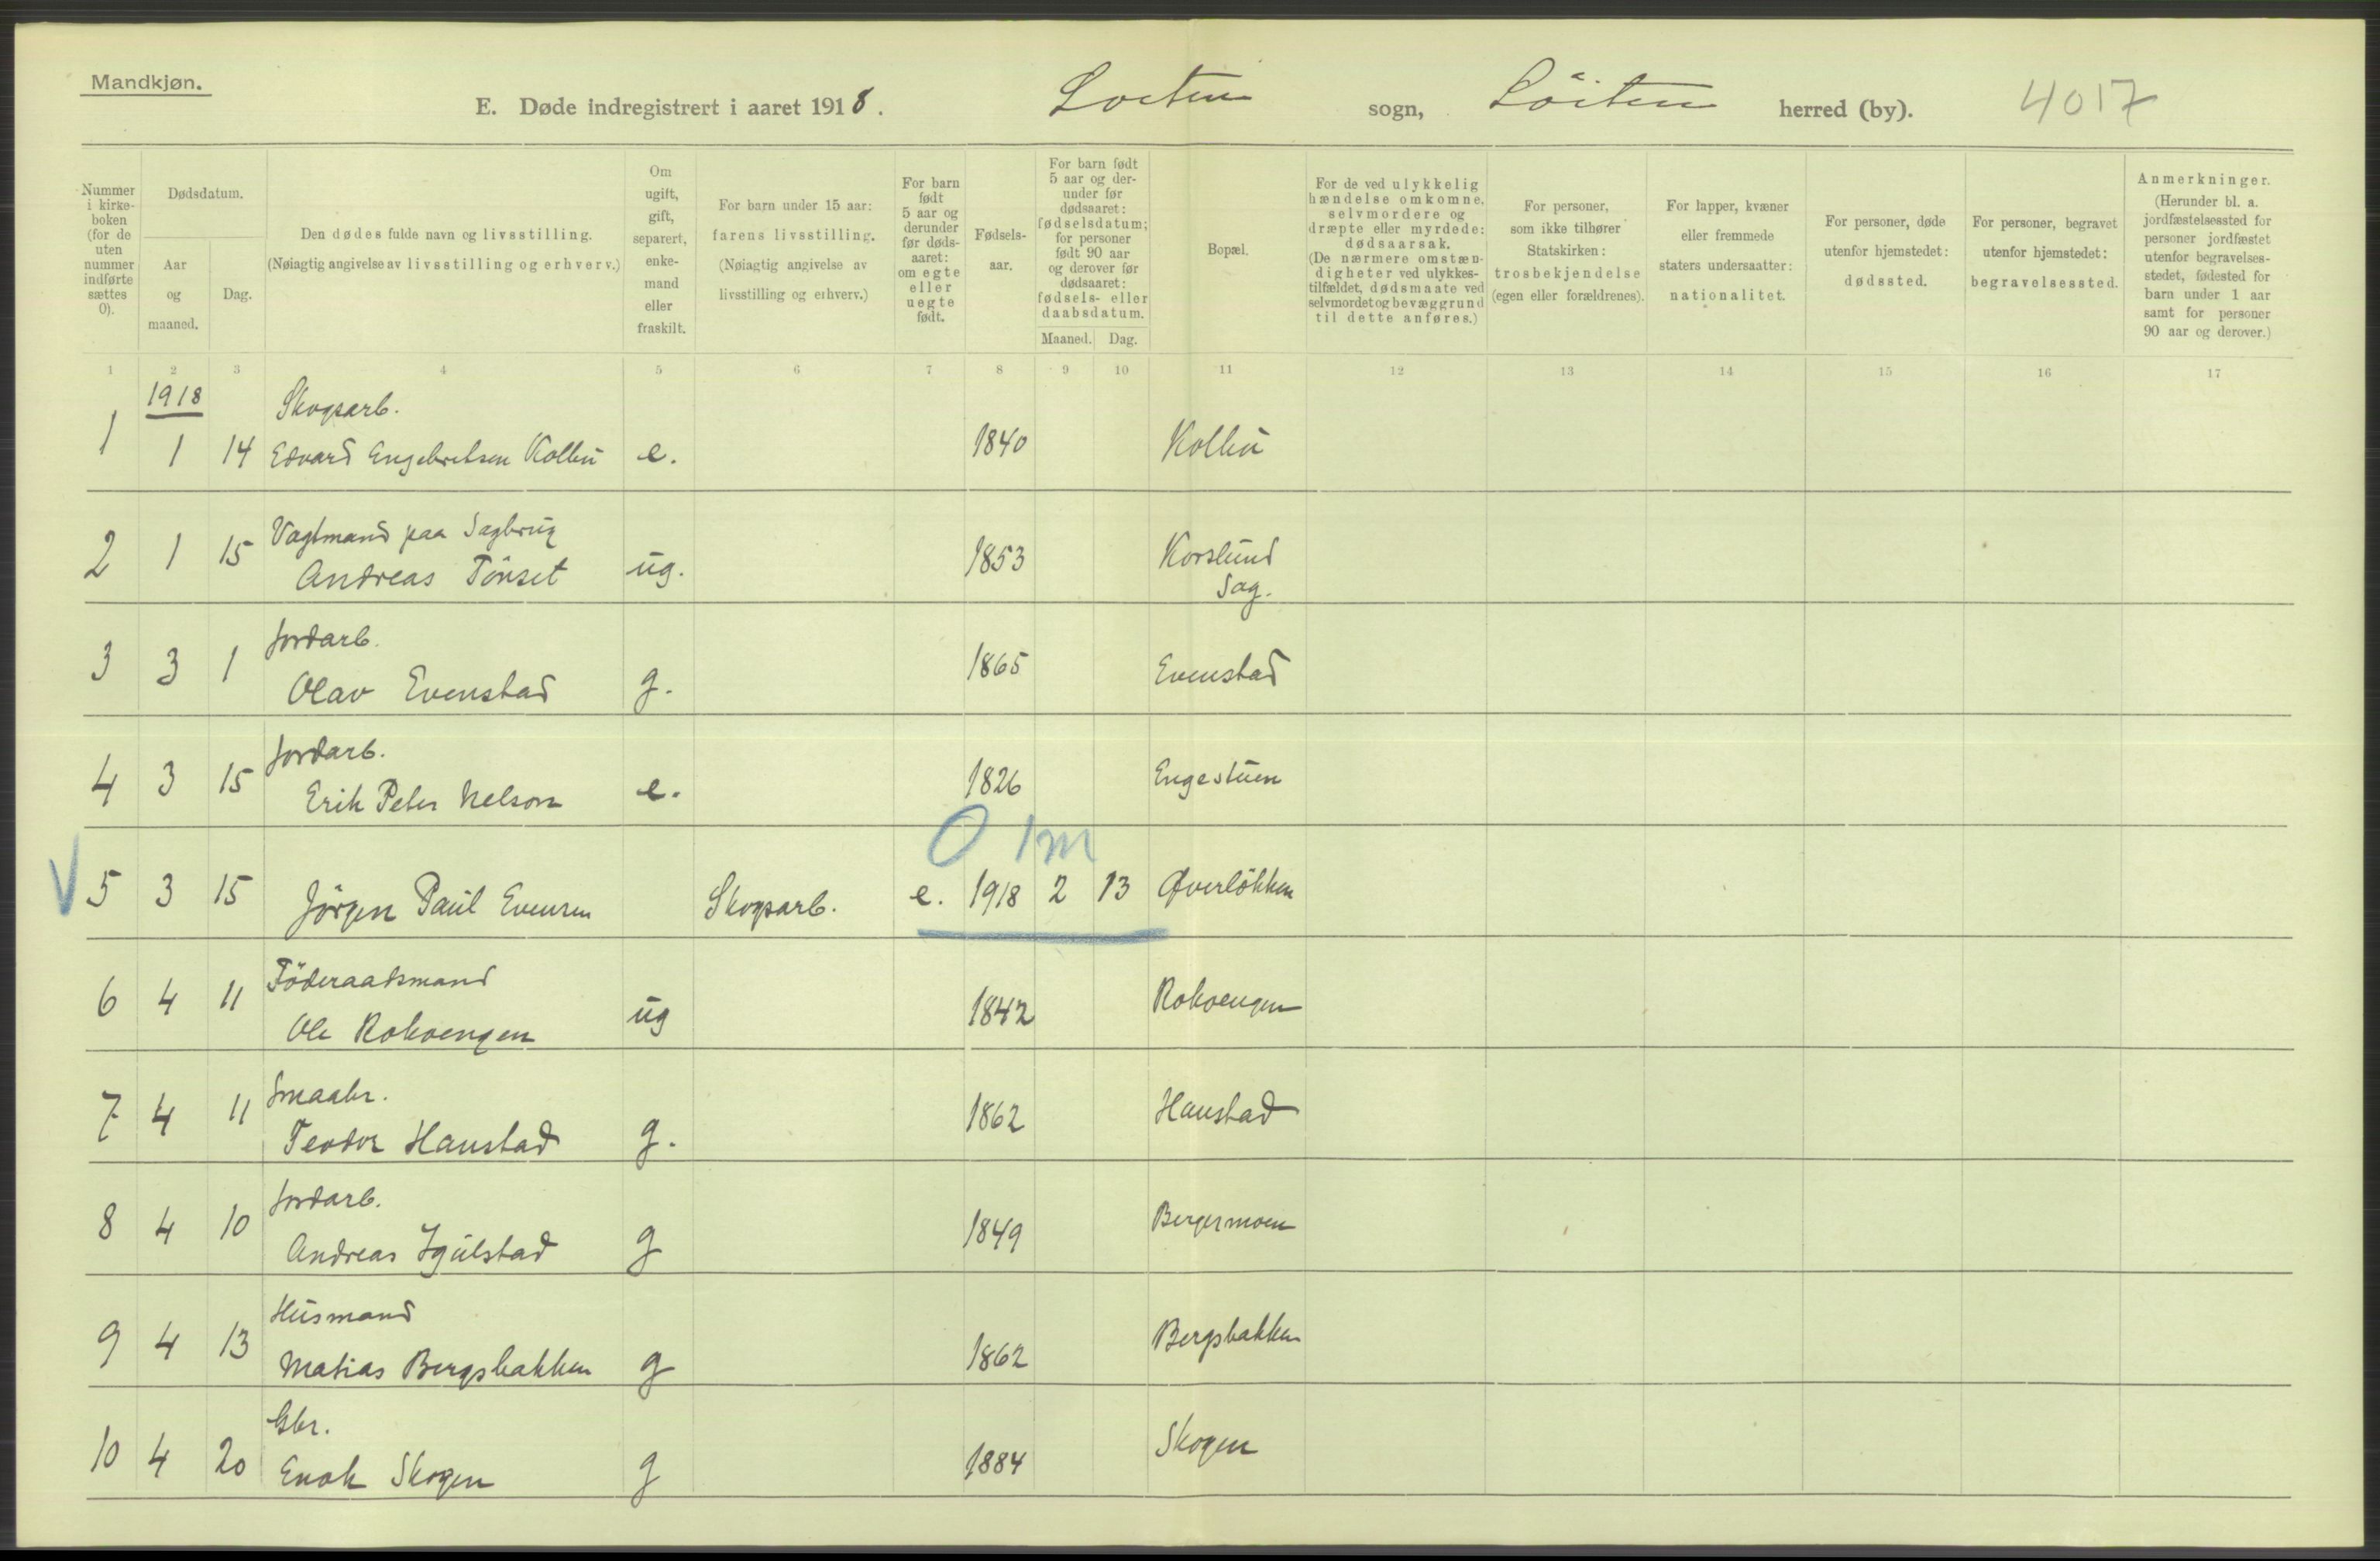 Mandkjøn.
E. Døde indregistrert i aaret 1918. Loiten sogn, Löiten herred (by). 4017
Nummer i kirke- boken (for de uten nummer indførte sættes 0).
Dødsdatum.
Aar og maaned.
Dag.
Den dødes fulde navn og livsstilling.
(Nøiagtig angivelse av livsstilling og erhverv.)
Om ugift, gift, separert, enke- mand eller fraskilt.
For barn under 15 aar: farens livsstilling.
(Nøiagtig angivelse av livsstilling og erhverv.)
For barn født 5 aar og derunder før døds- aaret: om egte eller uegte født.
Fødsels- aar.
For barn født 5 aar og der- under før dødsaaret: fødselsdatum; for personer født 90 aar og derover før dødsaaret: fødsels- eller daabsdatum.
Maaned. Dag.
Bopæl.
For de ved ulykkelig hændelse omkomne, selvmordere og dræpte eller myrdede: dødsaarsak.
(De nærmere omstæn- digheter ved ulykkes- tilfældet, dødsmaate ved selvmordet og bevæggrund til dette anføres.)
For personer, som ikke tilhører Statskirken: trosbekjendelse (egen eller forældrenes).
For lapper, kvæner eller fremmede staters undersaatter: nationalitet.
For personer, døde utenfor hjemstedet: dødssted.
For personer, begravet utenfor hjemstedet: begravelsessted.
Anmerkninger.
(Herunder bl. a. jordfæstelsessted for personer jordfæstet utenfor begravelses- stedet, fødested for barn under 1 aar samt for personer 90 aar og derover.)
1 2 3 4 5 6 7 8 9 10 11 12 13 14 15 16 17
1918
Skogsarb.
1 1 14 Edvard Engebretsen Kollen e. 1840 Kollen
Vagtmand paa Sagbrug
2 1 15 Andreas Tönset ug. 1853 Korslund Sag.
Jordarb.
3 3 1 Olav Evenstad g. 1865 Evenstad
Jordarb.
4 3 15 Erik Peter Nelson e. 1826 Engestuen
0 1m
V 5 3 15 Jörgen Paul Evensen Skogsarb. e. 1918 2 13 Øverlökken
Föderaadsmand
6 4 11 Ole Rokoengen ug 1842 Rokoengen
Smaabr.
7 4 11 Teodor Haustad g. 1862 Haustad
Jordarb.
8 4 10 Andreas Igülstad g 1849 Bergermoen
Husmand
9 4 13 Matias Bergsbakken g 1862 Bergsbakken
Gbr.
10 4 20 Enok Skogen g 1884 Skogen